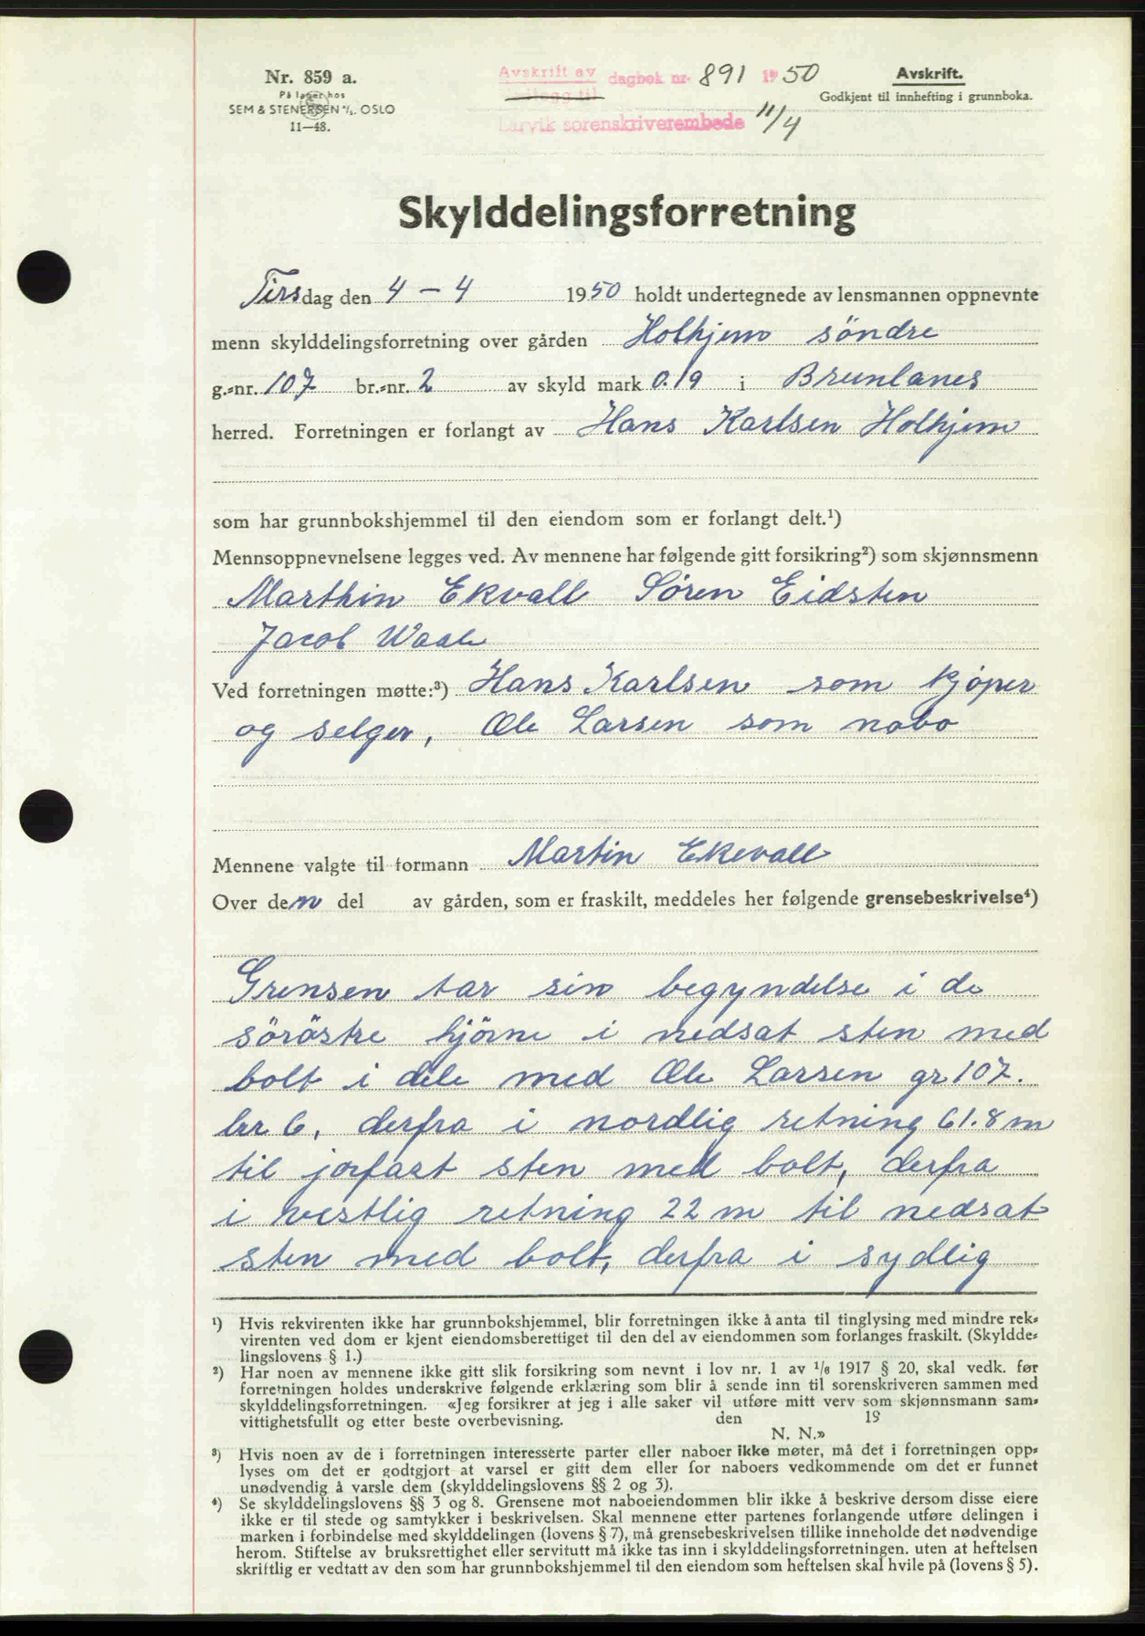 Nr. 859 a.
På lager hos
SEM & STENERSEN A/S. OSLO
11—48.
Avskrift av dagbok nr. 891 1950
Vedlegg til
Larvik sorenskriverembede 11/4
Avskrift.
Godkjent til innhefting i grunnboka.
Skylddelingsforretning
Tirsdag den 4 - 4 1950 holdt undertegnede av lensmannen oppnevnte
menn skylddelingsforretning over gården Holhjem söndre
g.-nr. 107 br.-nr. 2 av skyld mark 0.19 i Brunlanes
herred. Forretningen er forlangt av Hans Karlsen Holhjem
som har grunnbokshjemmel til den eiendom som er forlangt delt.¹)
Mennsoppnevnelsene legges ved. Av mennene har følgende gitt forsikring²) som skjønnsmenn
Marthin Ekvall Søren Eidsten
Jacob Waale
Ved forretningen møtte:³) Hans Karlsen som kjøper
og selger, Ole Larsen som nabo
Mennene valgte til formann Martin Ekevall
Over den del av gården, som er fraskilt, meddeles her følgende grensebeskrivelse⁴)
Grensen tar sin begyndelse i de
söröstre hjörne i nedsat sten med
bolt i dele med Ole Larsen gr 107.
br 6, derfra i nordlig retning 61.8 m
til jorfast sten med bolt, derfra
i vestlig retning 22 m til nedsat
sten med bolt, derfra i sydlig
¹) Hvis rekvirenten ikke har grunnbokshjemmel, blir forretningen ikke å anta til tinglysing med mindre rek-
virenten ved dom er kjent eiendomsberettiget til den del av eiendommen som forlanges fraskilt. (Skyldde-
lingslovens § 1.)
²) Har noen av mennene ikke gitt slik forsikring som nevnt i lov nr. 1 av ¹/₆ 1917 § 20, skal vedk. før
forretningen holdes underskrive følgende erklæring som blir å sende inn til sorenskriveren sammen med
skylddelingsforretningen. «Jeg forsikrer at jeg i alle saker vil utføre mitt verv som skjønnsmann sam-
vittighetsfullt og etter beste overbevisning. den 19
N. N.»
³) Hvis noen av de i forretningen interesserte parter eller naboer ikke møter, må det i forretningen opp-
lyses om det er godtgjort at varsel er gitt dem eller for naboers vedkommende om det er funnet
unødvendig å varsle dem (skylddelingslovens §§ 2 og 3).
⁴) Se skylddelingslovens §§ 3 og 8. Grensene mot naboeiendommen blir ikke å beskrive dersom disse eiere
ikke er til stede og samtykker i beskrivelsen. Skal mennene etter partenes forlangende utføre delingen i
marken i forbindelse med skylddelingen (lovens § 7), må grensebeskrivelsen tillike inneholde det nødvendige
herom. Stiftelse av bruksrettighet eller servitutt må ikke tas inn i skylddelingsforretningen. uten at heftelsen
skriftlig er vedtatt av den som har grunnbokshjemmel til den eiendom som heftelsen skal hvile på (lovens § 5).